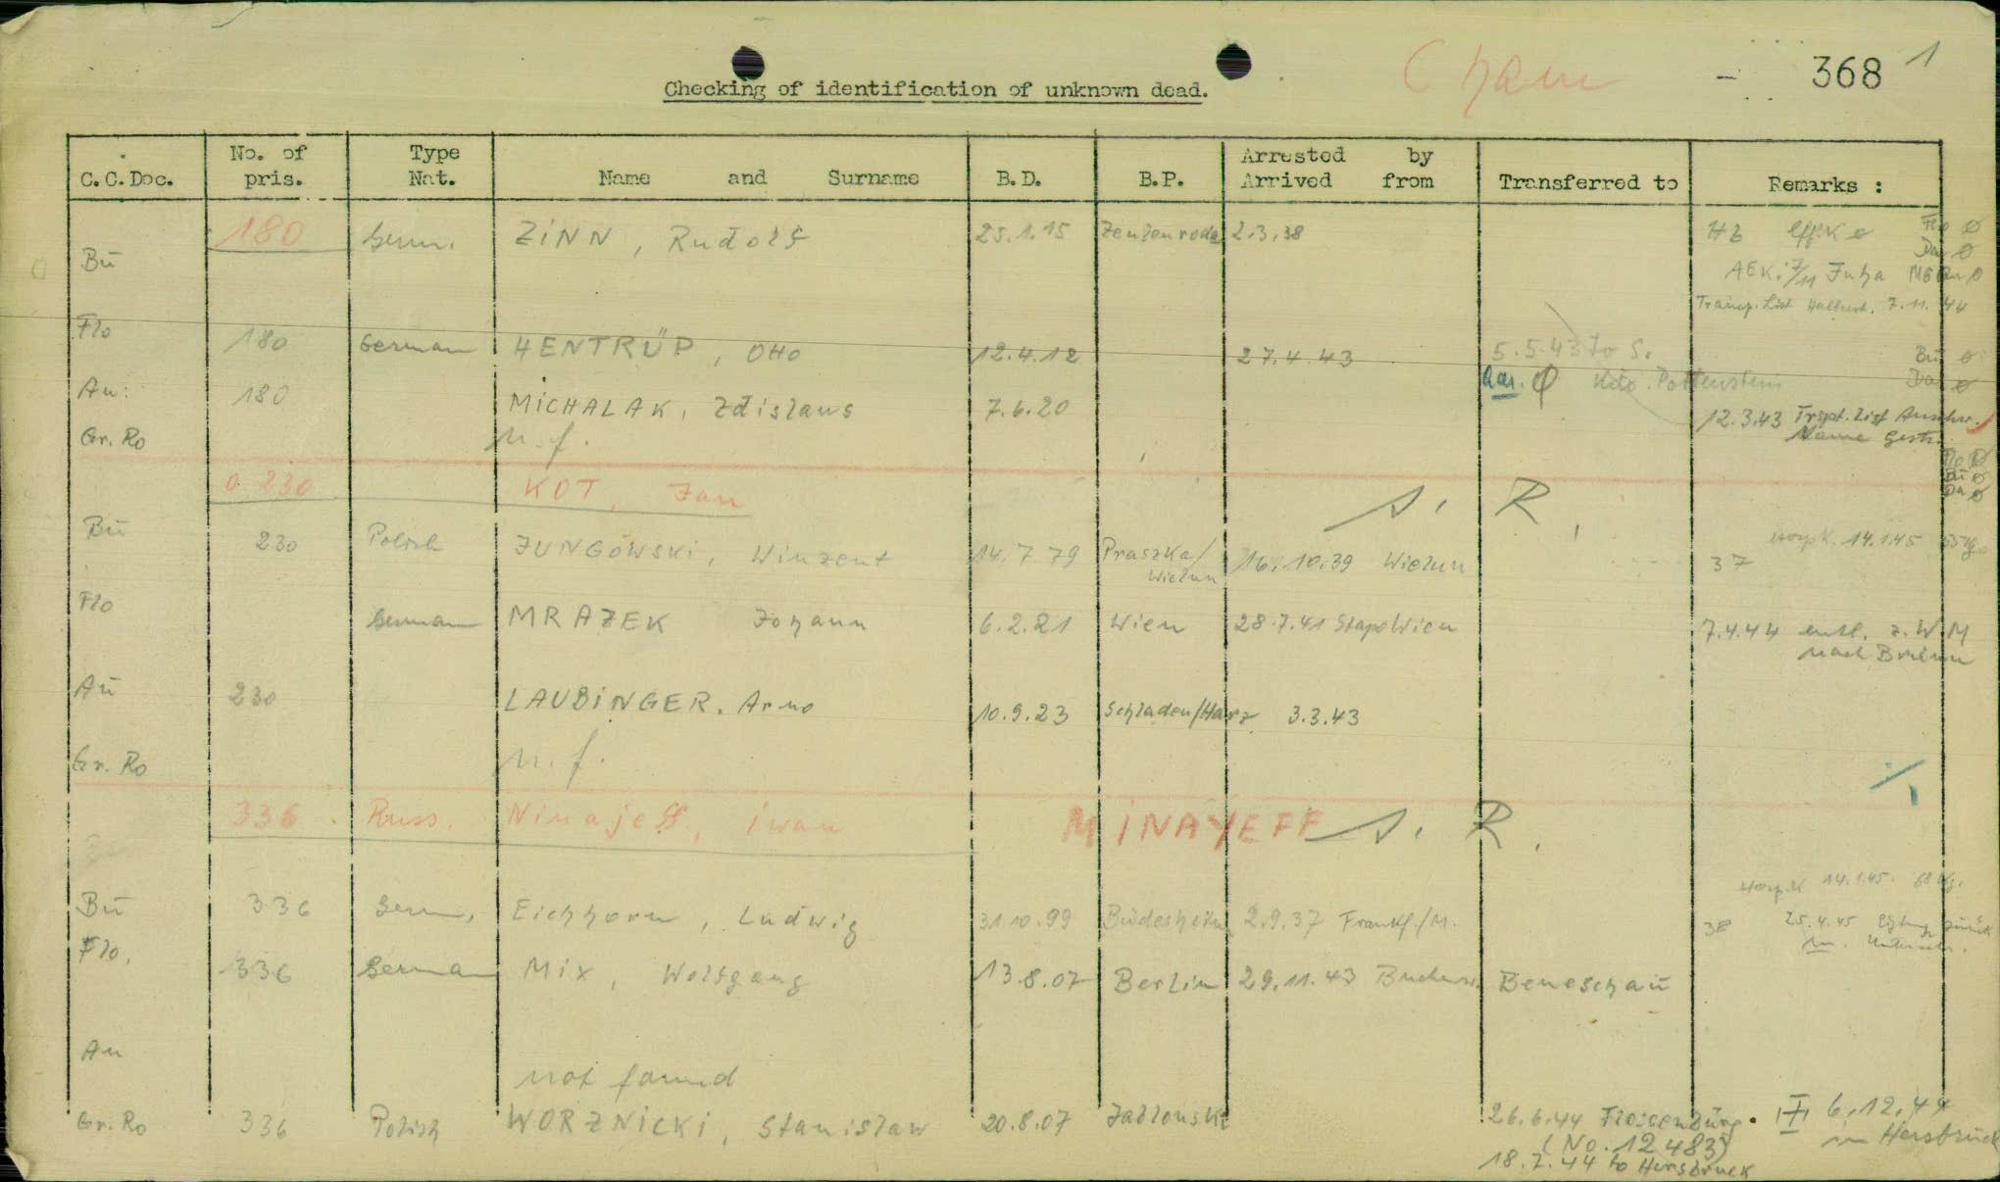 Cham - 368 1
Checking of identification of unknown dead.
C.C.Doc. No. of pris. Type Nat. Name and Surname B.D. B.P. Arrested by Arrived from Transferred to Remarks :
180 Germ. ZINN, Rudolf 25.1.15 Zeulenroda 2.3.38
Bu
Flo 180 German HENTRÜP, Otto 12.4.12 27.4.43 5.5.43 To S. Bu ø
Kdo. Pottenstein Da ø
Au: 180 MICHALAK, Zdislaus 7.6.20 12.3.43 Trspt. List
Name gestr.
Gr. Ro n.f.
0 230 KOT, Jan S. R.
Bu 230 Polish JUNGOWSKI, Winzent 14.7 79 Praszka/ Wielun 16.10.39 Wielun 37 14.1.45
Flo German MRAZEK Johann 6.2.21 Wien 28.7.41 Stapo Wien 7.4.44 entl. z. W M
nach Brünn
Au 230 LAUBINGER, Arno 10.9.23 Schladen/Harz 3.3.43
Gr. Ro n.f.
336 Russ. Ninajeff, iwan MINAYEFF S. R.
Bu 336 Germ. Eichhorn, Ludwig 31.10.99 Büdesheim 2.9.37 Frankf./M. 38 14.1.45. 25.4.45
Flo. 336 German Mix, Wolfgang 13.8.07 Berlin 29.11.43 Buchenw. Beneschau
Au
not found
Gr. Ro 336 Polish WORZNICKI, Stanislaw 20.8.07 Jablonski 26.6.44 Flossenbürg. 6.12.44
(No. 12483) in Hersbruck
18.7.44 to Hersbruck